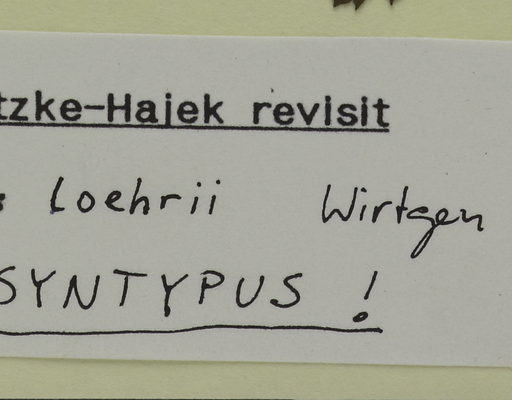 tzke-Hajek revisit
Loehrii Wirtgen
SYNTYPUS !